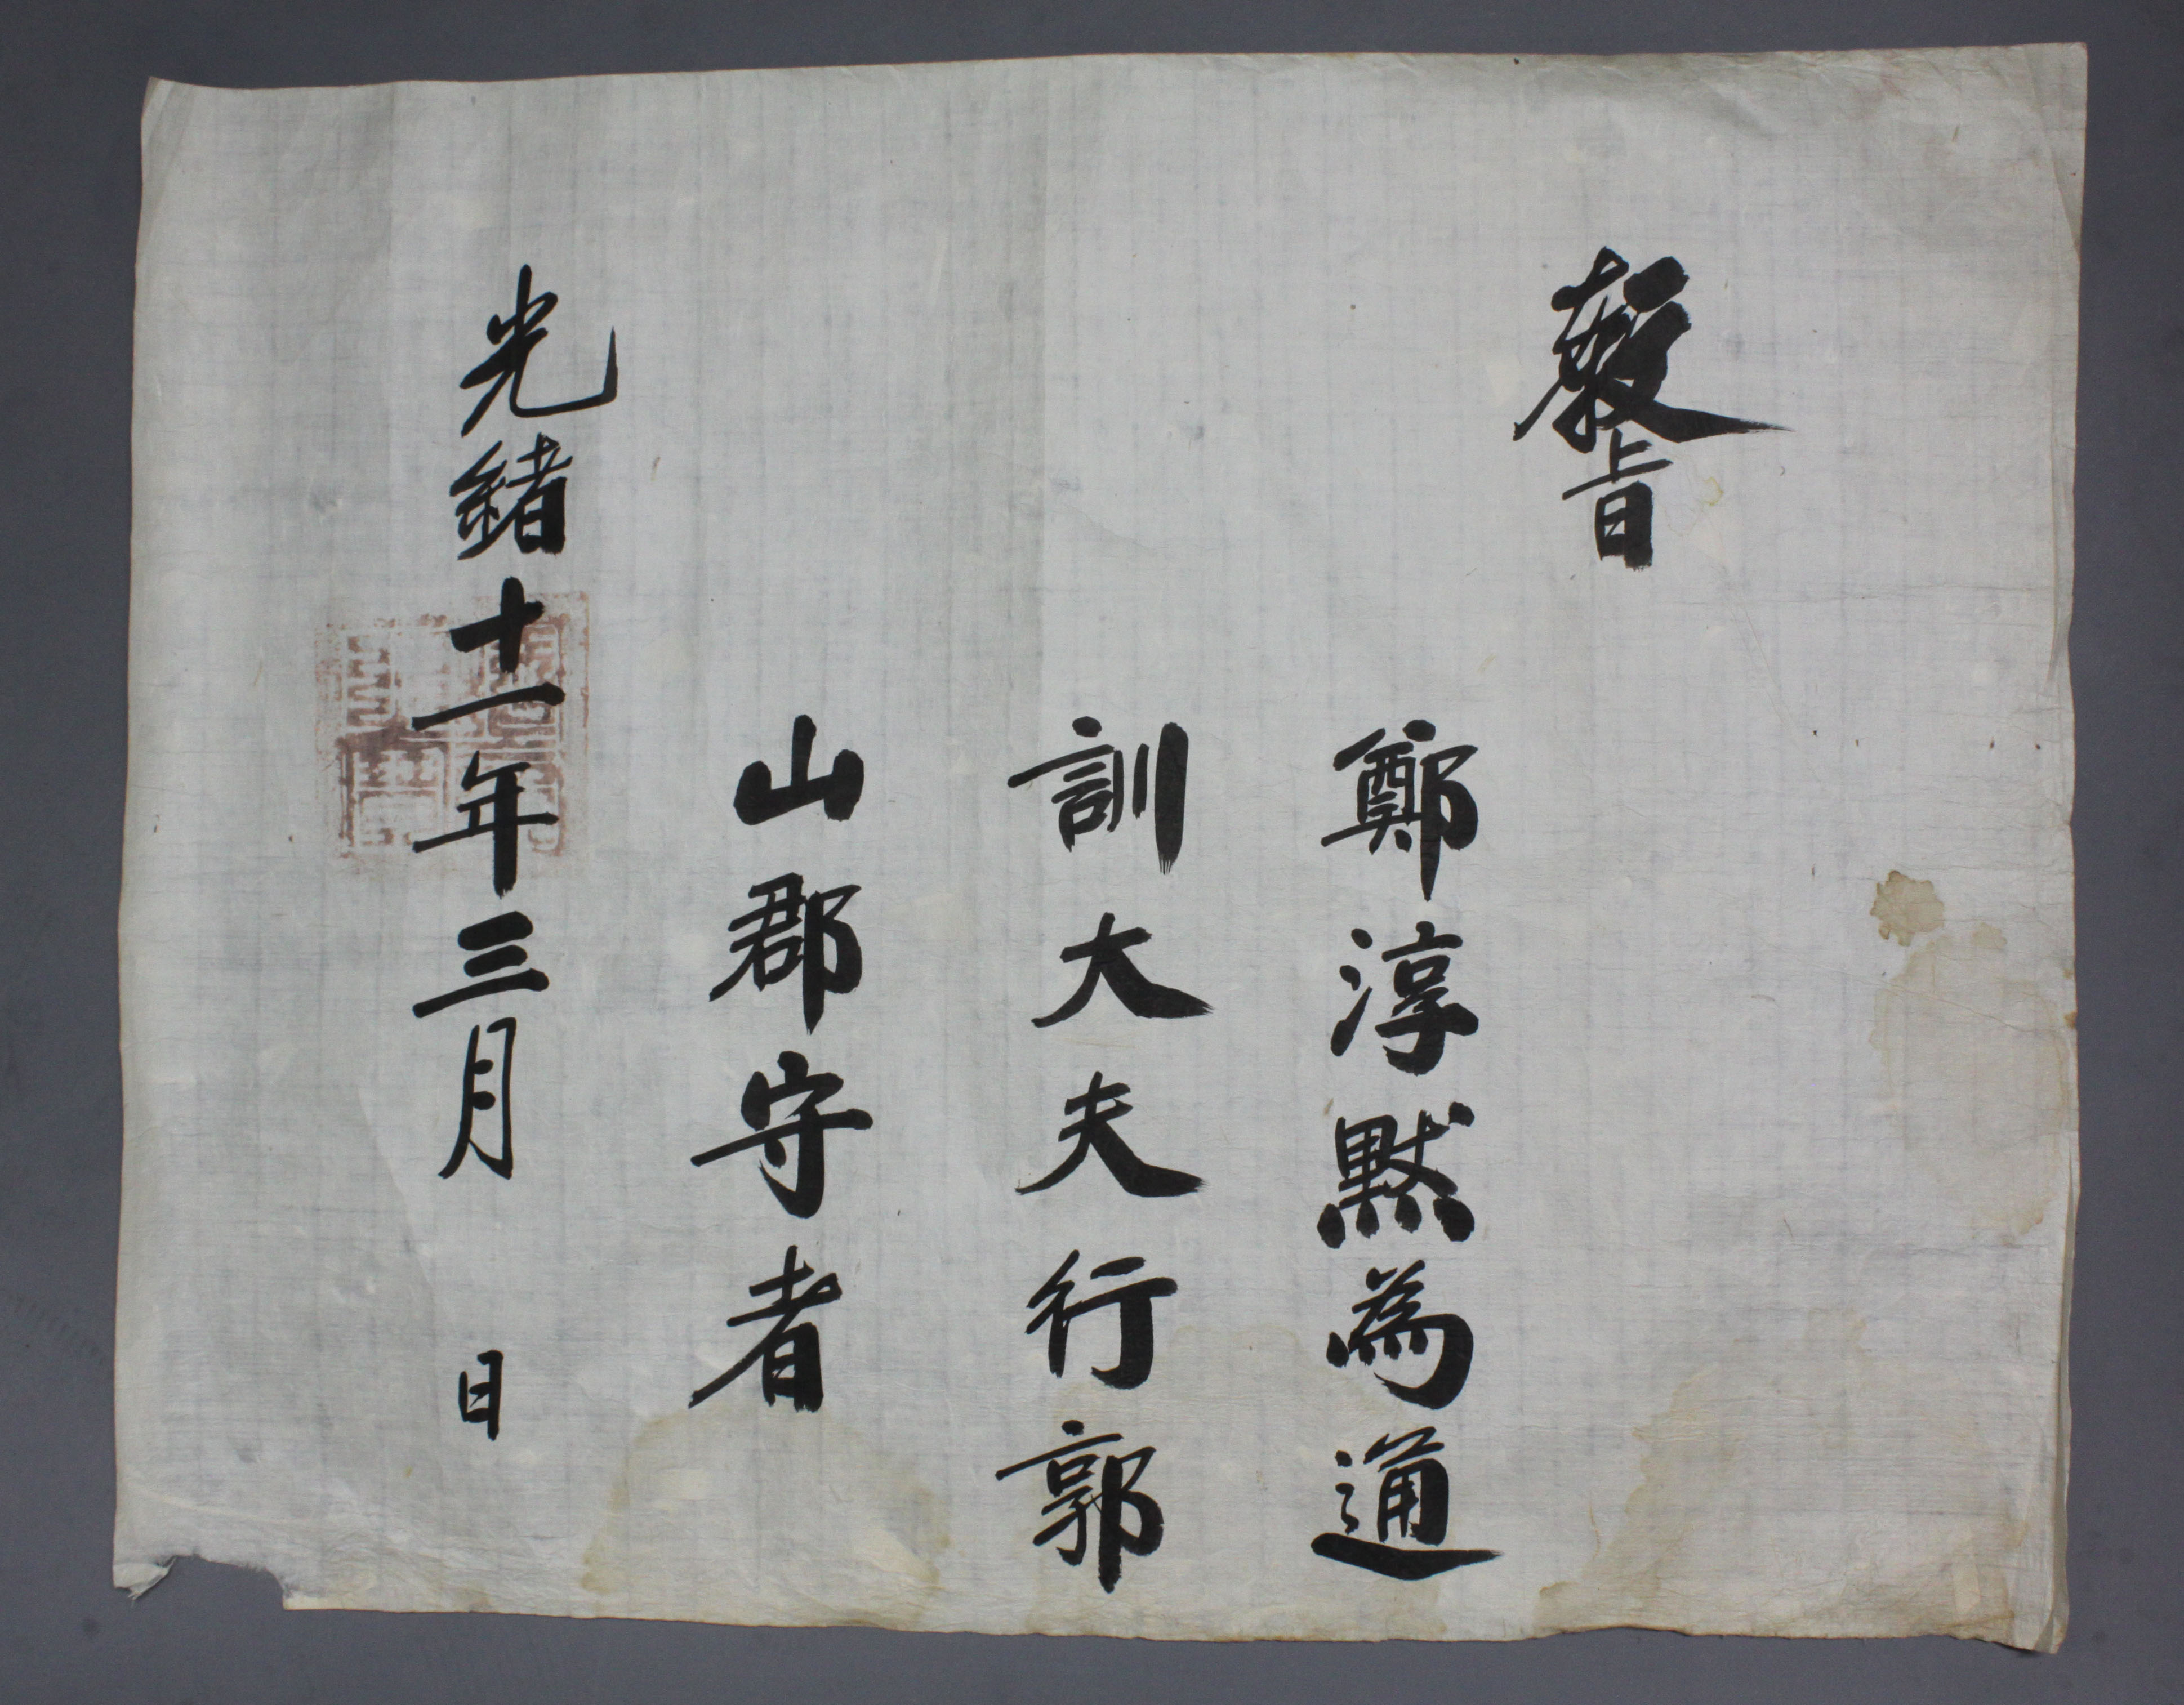 敎旨
鄭淳默爲通
訓大夫行郭
山郡守者
光緖十一年三月 日